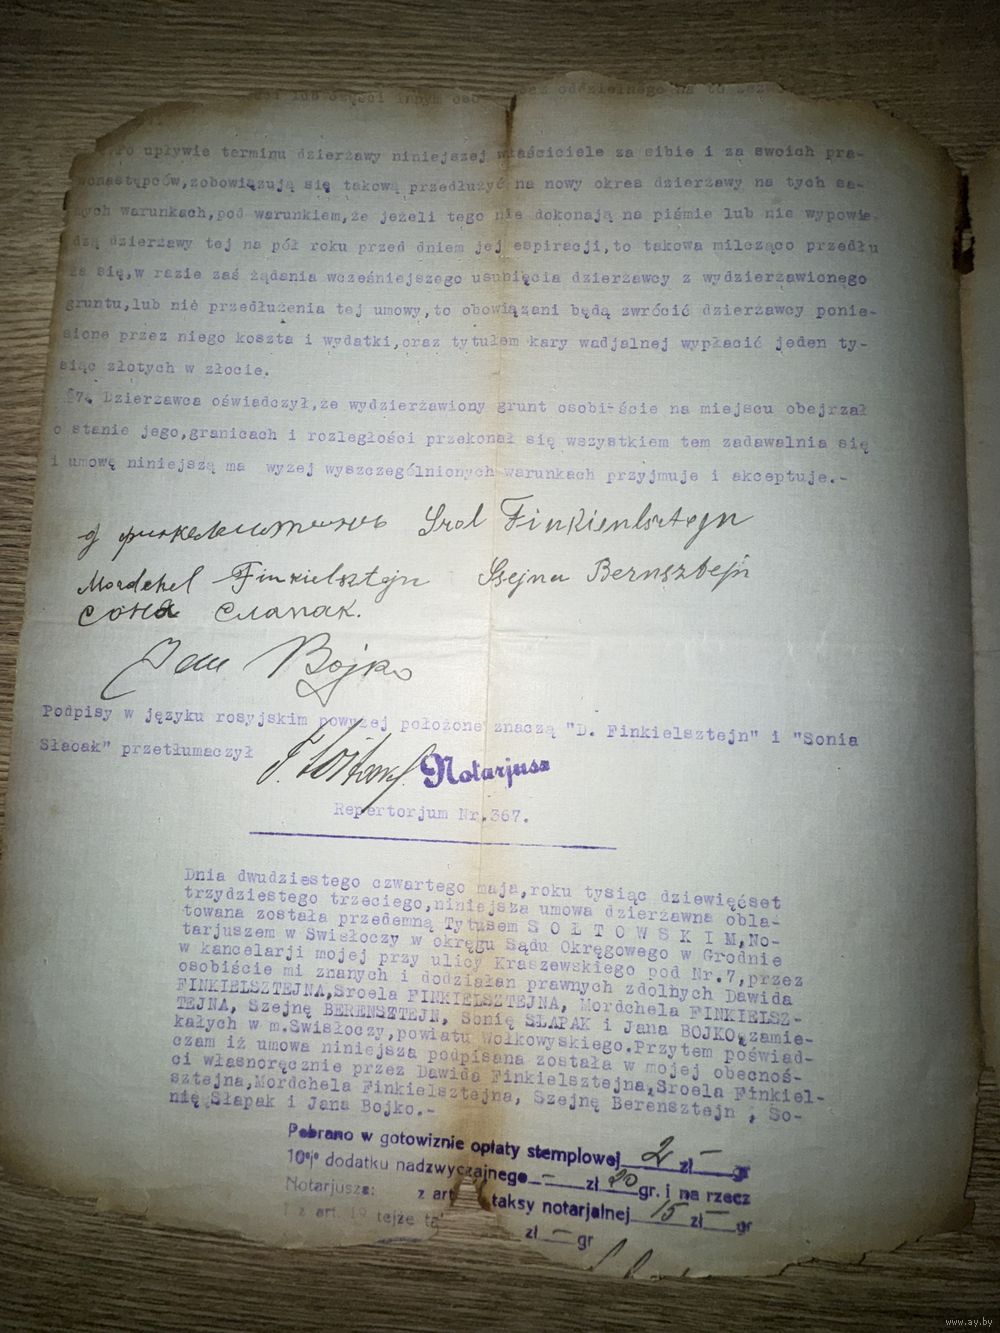 lub części innym oddzielnego na to
upływie terminu dzierżawy niniejszej właściciele za sibie i za swoich pra-
wonastępców,zobowiązują się takową przedłużyć na nowy okres dzierżawy na tych sa-
mych warunkach,pod warunkiem,że jeżeli tego nie dokonają na piśmie lub nie wypowie
dzą dzierżawy tej na pół roku przed dniem jej espiracji,to takowa milcząco przedłu
ża się,w razie zaś żądania wcześniejszego usunięcia dzierżawcy z wydzierżawionego
gruntu,lub nie przedłużenia tej umowy,to obowiązani będą zwrócić dzierżawcy ponie-
sione przez niego koszta i wydatki,oraz tytułem kary wadjalnej wypłacić jeden ty-
siąc złotych w złocie.
§7. Dzierżawca oświadczył,że wydzierżawiony grunt osobi-ście na miejscu obejrzał
o stanie jego,granicach i rozległości przekonał się wszystkiem tem zadawalnia się
i umowę niniejszą na wyżej wyszczególnionych warunkach przyjmuje i akceptuje.-
Srol Finkielsztejn
Mordchel Finkielsztejn Szejna Bernsztejn
Соня Слапак.
Jan Bojko
Podpisy w języku rosyjskim powyżej położone znaczą "D. Finkielsztejn" i "Sonia
Słapak" przetłumaczył
Notarjusz
Repertorjum Nr.367.
Dnia dwudziestego czwartego maja,roku tysiąc dziewięćset
trzydziestego trzeciego,niniejsza umowa dzierżawna obla-
towana została przedemną Tytusem S O Ł T O W S K I M,No-
tarjuszem w Świsłoczy w okręgu Sądu Okręgowego w Grodnie
w kancelarji mojej przy ulicy Kraszewskiego pod Nr.7,przez
osobiście mi znanych i dodziałań prawnych zdolnych Dawida
FINKIELSZTEJNA,Sroela FINKIELSZTEJNA, Mordchela FINKIELSZ-
TEJNA, Szejnę BERENSZTEJN, Sonię SŁAPAK i Jana BOJKO,zamie-
kałych w m.Świsłoczy,powiatu Wołkowyskiego.Przytem poświad-
czam iż umowa niniejsza podpisana została w mojej obecnoś-
ci własnoręcznie przez Dawida Finkielsztejna,Sroela Finkiel-
sztejna,Mordchela Finkielsztejna, Szejnę Berensztejn , So-
nię Słapak i Jana Bojko.-
Pobrano w gotowiznie opłaty stemplowej 2 zł — gr
10% dodatku nadzwyczajnego — zł 20 gr. i na rzecz
Notarjusza: z art taksy notarjalnej 15 zł — gr
i z art. 19 tejże zł — gr
www.ay.by